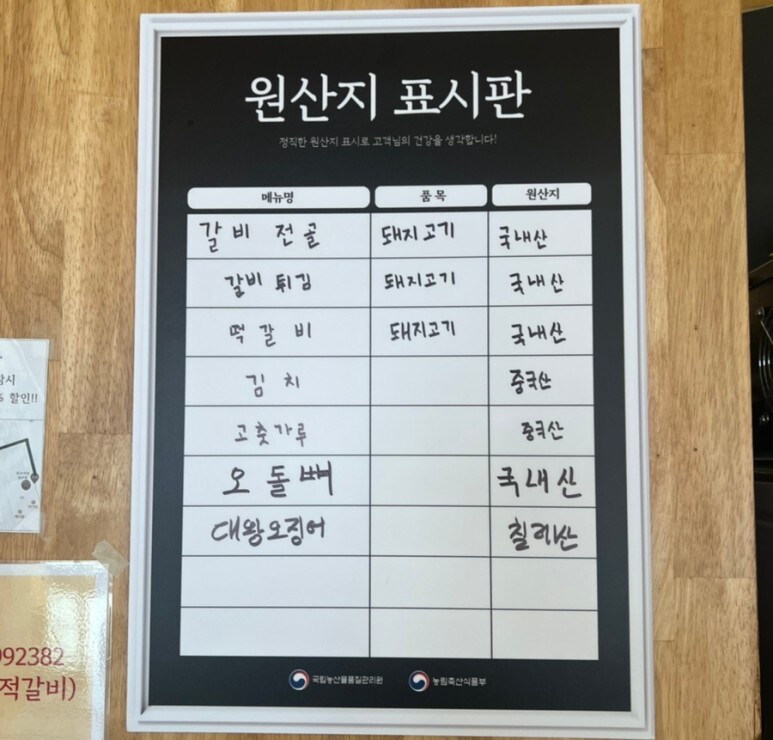 원산지 표시판
정직한 원산지 표시로 고객님의 건강을 생각합니다!
메뉴명 품목 원산지
갈비 전골 돼지고기 국내산
갈비 튀김 돼지고기 국내산
떡 갈비 돼지고기 국내산
김치 중국산
고춧가루 중국산
오돌뼈 국내산
대왕오징어 칠레산
국립농산물품질관리원 농림축산식품부
할인!!
092382
적갈비)